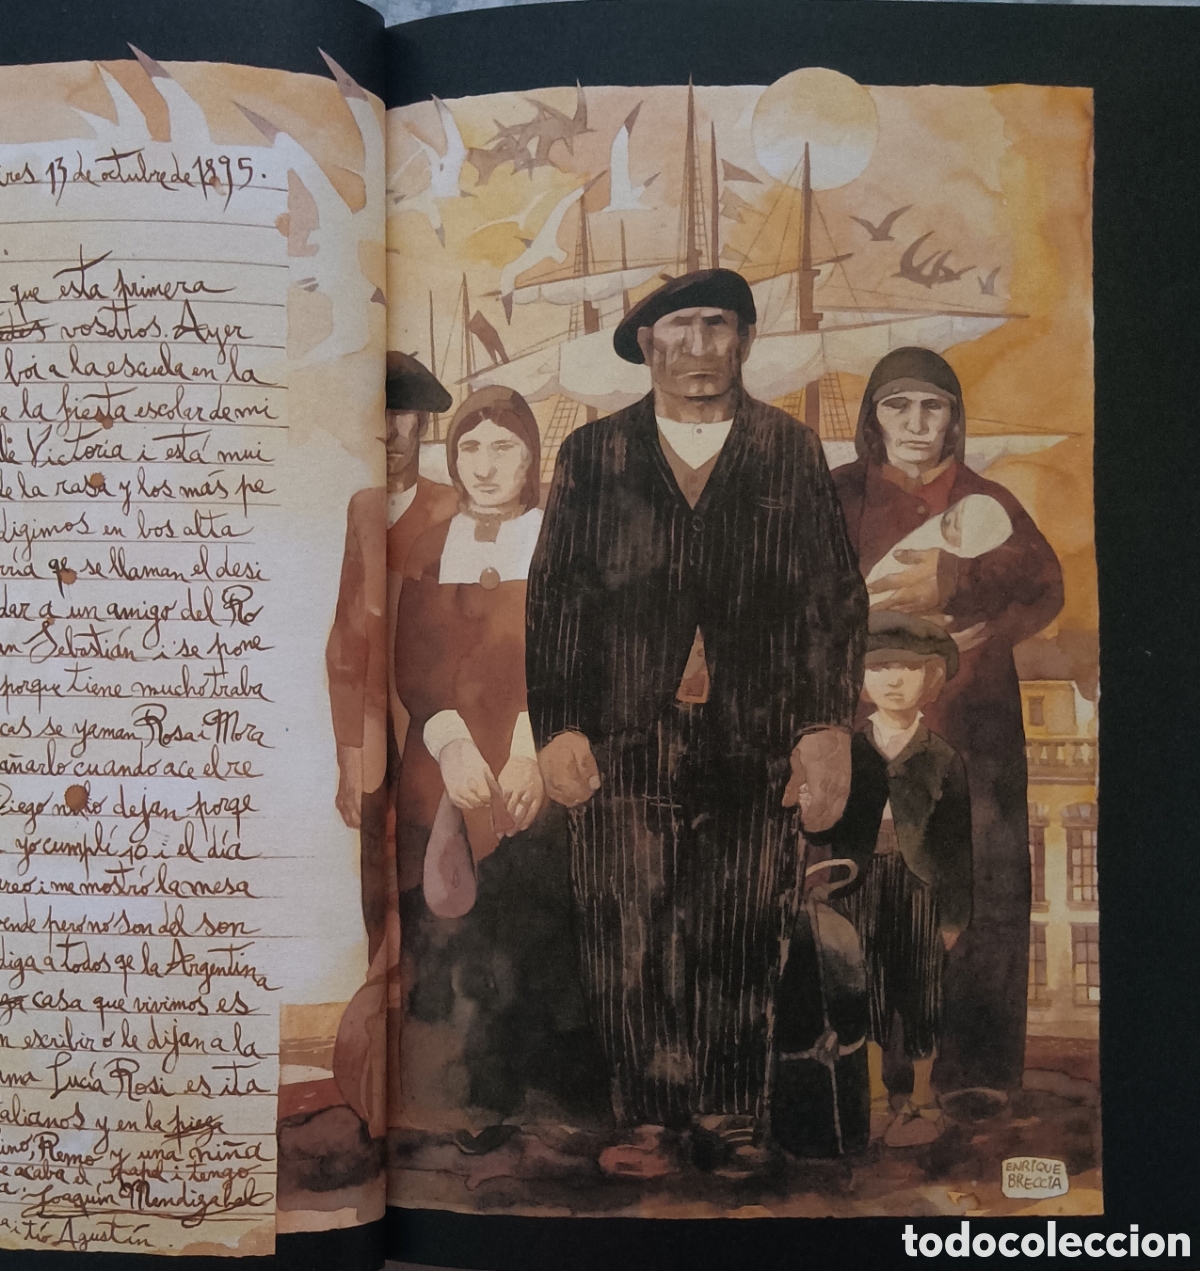 ires 13 de octubre de 1895.
que esta primera
vosotros. Ayer
boi a la escuela en la
e la fiesta escolar de mi
Victoria i está mui
de la rasa y los más pe
digimos en bos alta
ría qe se llaman el desi
dar a un amigo del Ro
an Sebastián i se pone
porque tiene mucho traba
cas se yaman Rosa i Mora
añarlo cuando ace el re
Diego no lo dejan porge
yo cumplí 10 i el día
areo i me mostró la mesa
vende pero no son del son
diga a todos qe la Argentina
casa que vivimos es
n escribir o le dijan a la
ama Lucía Rosi es ita
talianos y en la pieza
ino, Remo y una niña
se acaba el papel i tengo
a. Joaquín Mendizabal
a i tío Agustín.
ENRIQUE
BRECCIA
todocoleccion